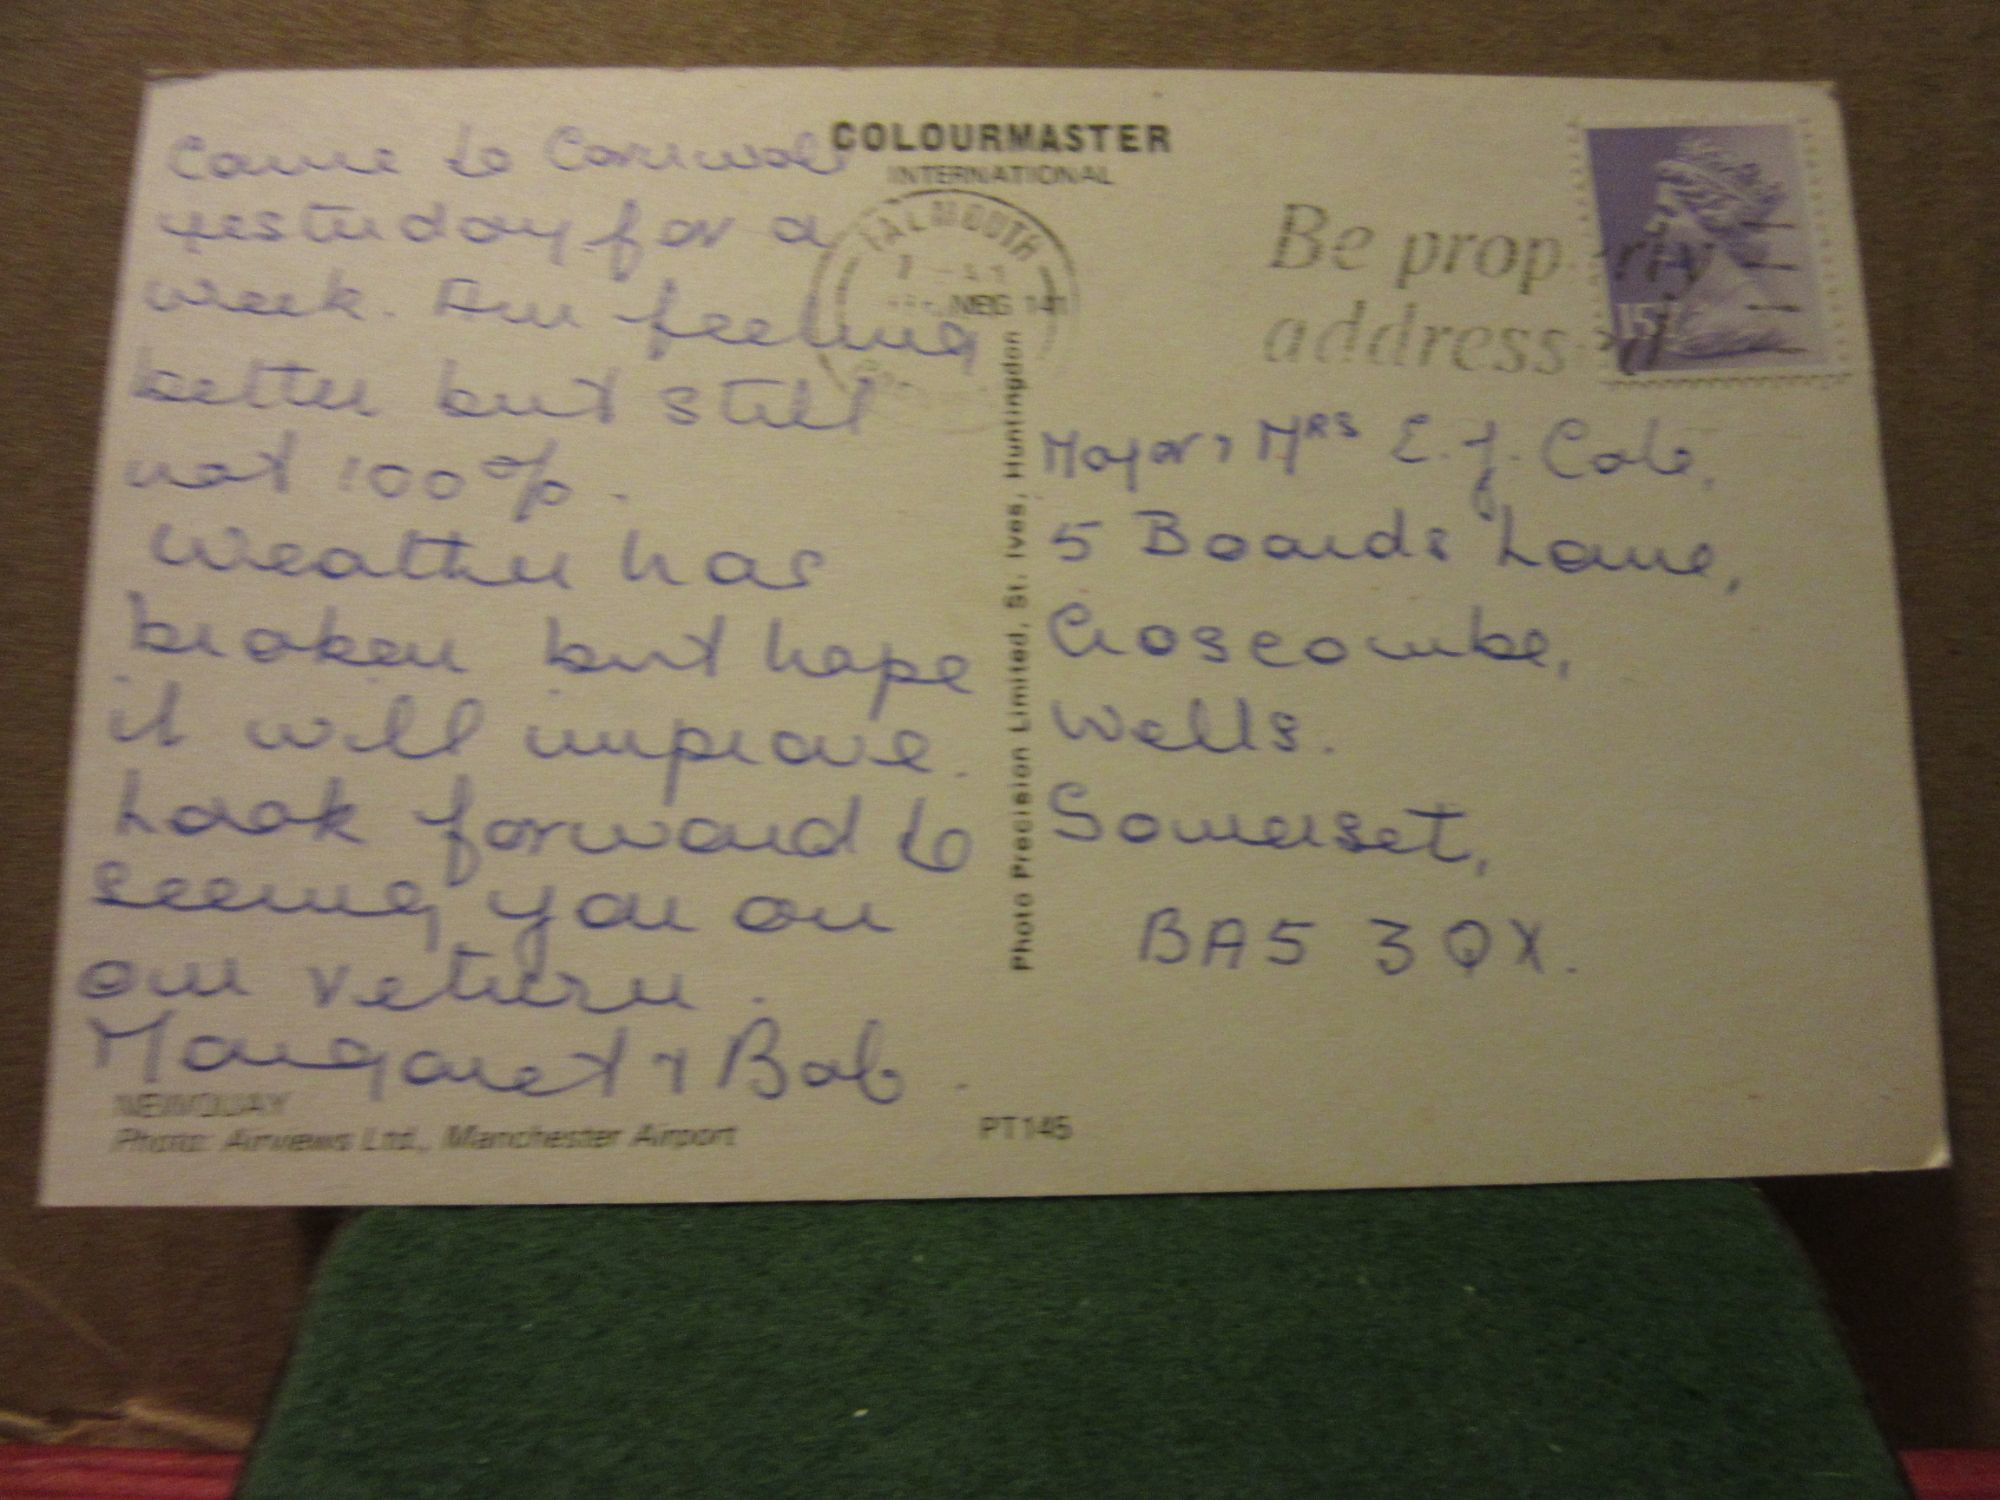 COLOURMASTER
INTERNATIONAL
Came to Cornwall
yesterday for a
week. Am feeling
better but still
not 100%.
Weather has
broken but hope
it will improve.
Look forward to
seeing you on
our return.
Margaret & Bob.
NEWQUAY
Photo: Airviews Ltd., Manchester Airport
PT145
Photo Precision Limited, St. Ives, Huntingdon
FALMOUTH
Be properly
addressed
15
Major & Mrs E.J. Cole,
5 Boards Lane,
Croscombe,
Wells.
Somerset,
BA5 3QX.